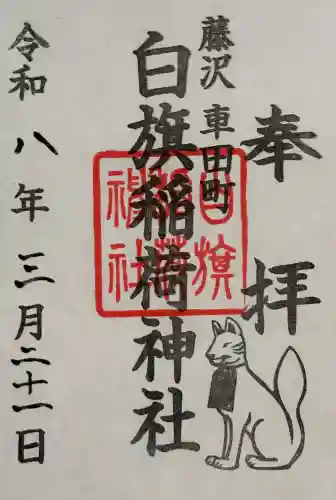 奉拝
藤沢 車田町
白旗稲荷神社
白旗稲荷神社
令和八年三月二十一日